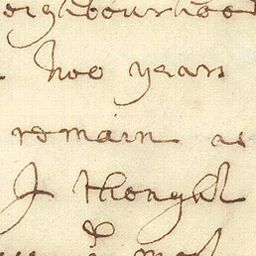 neighbourhood
two years
remain as
I thought
&